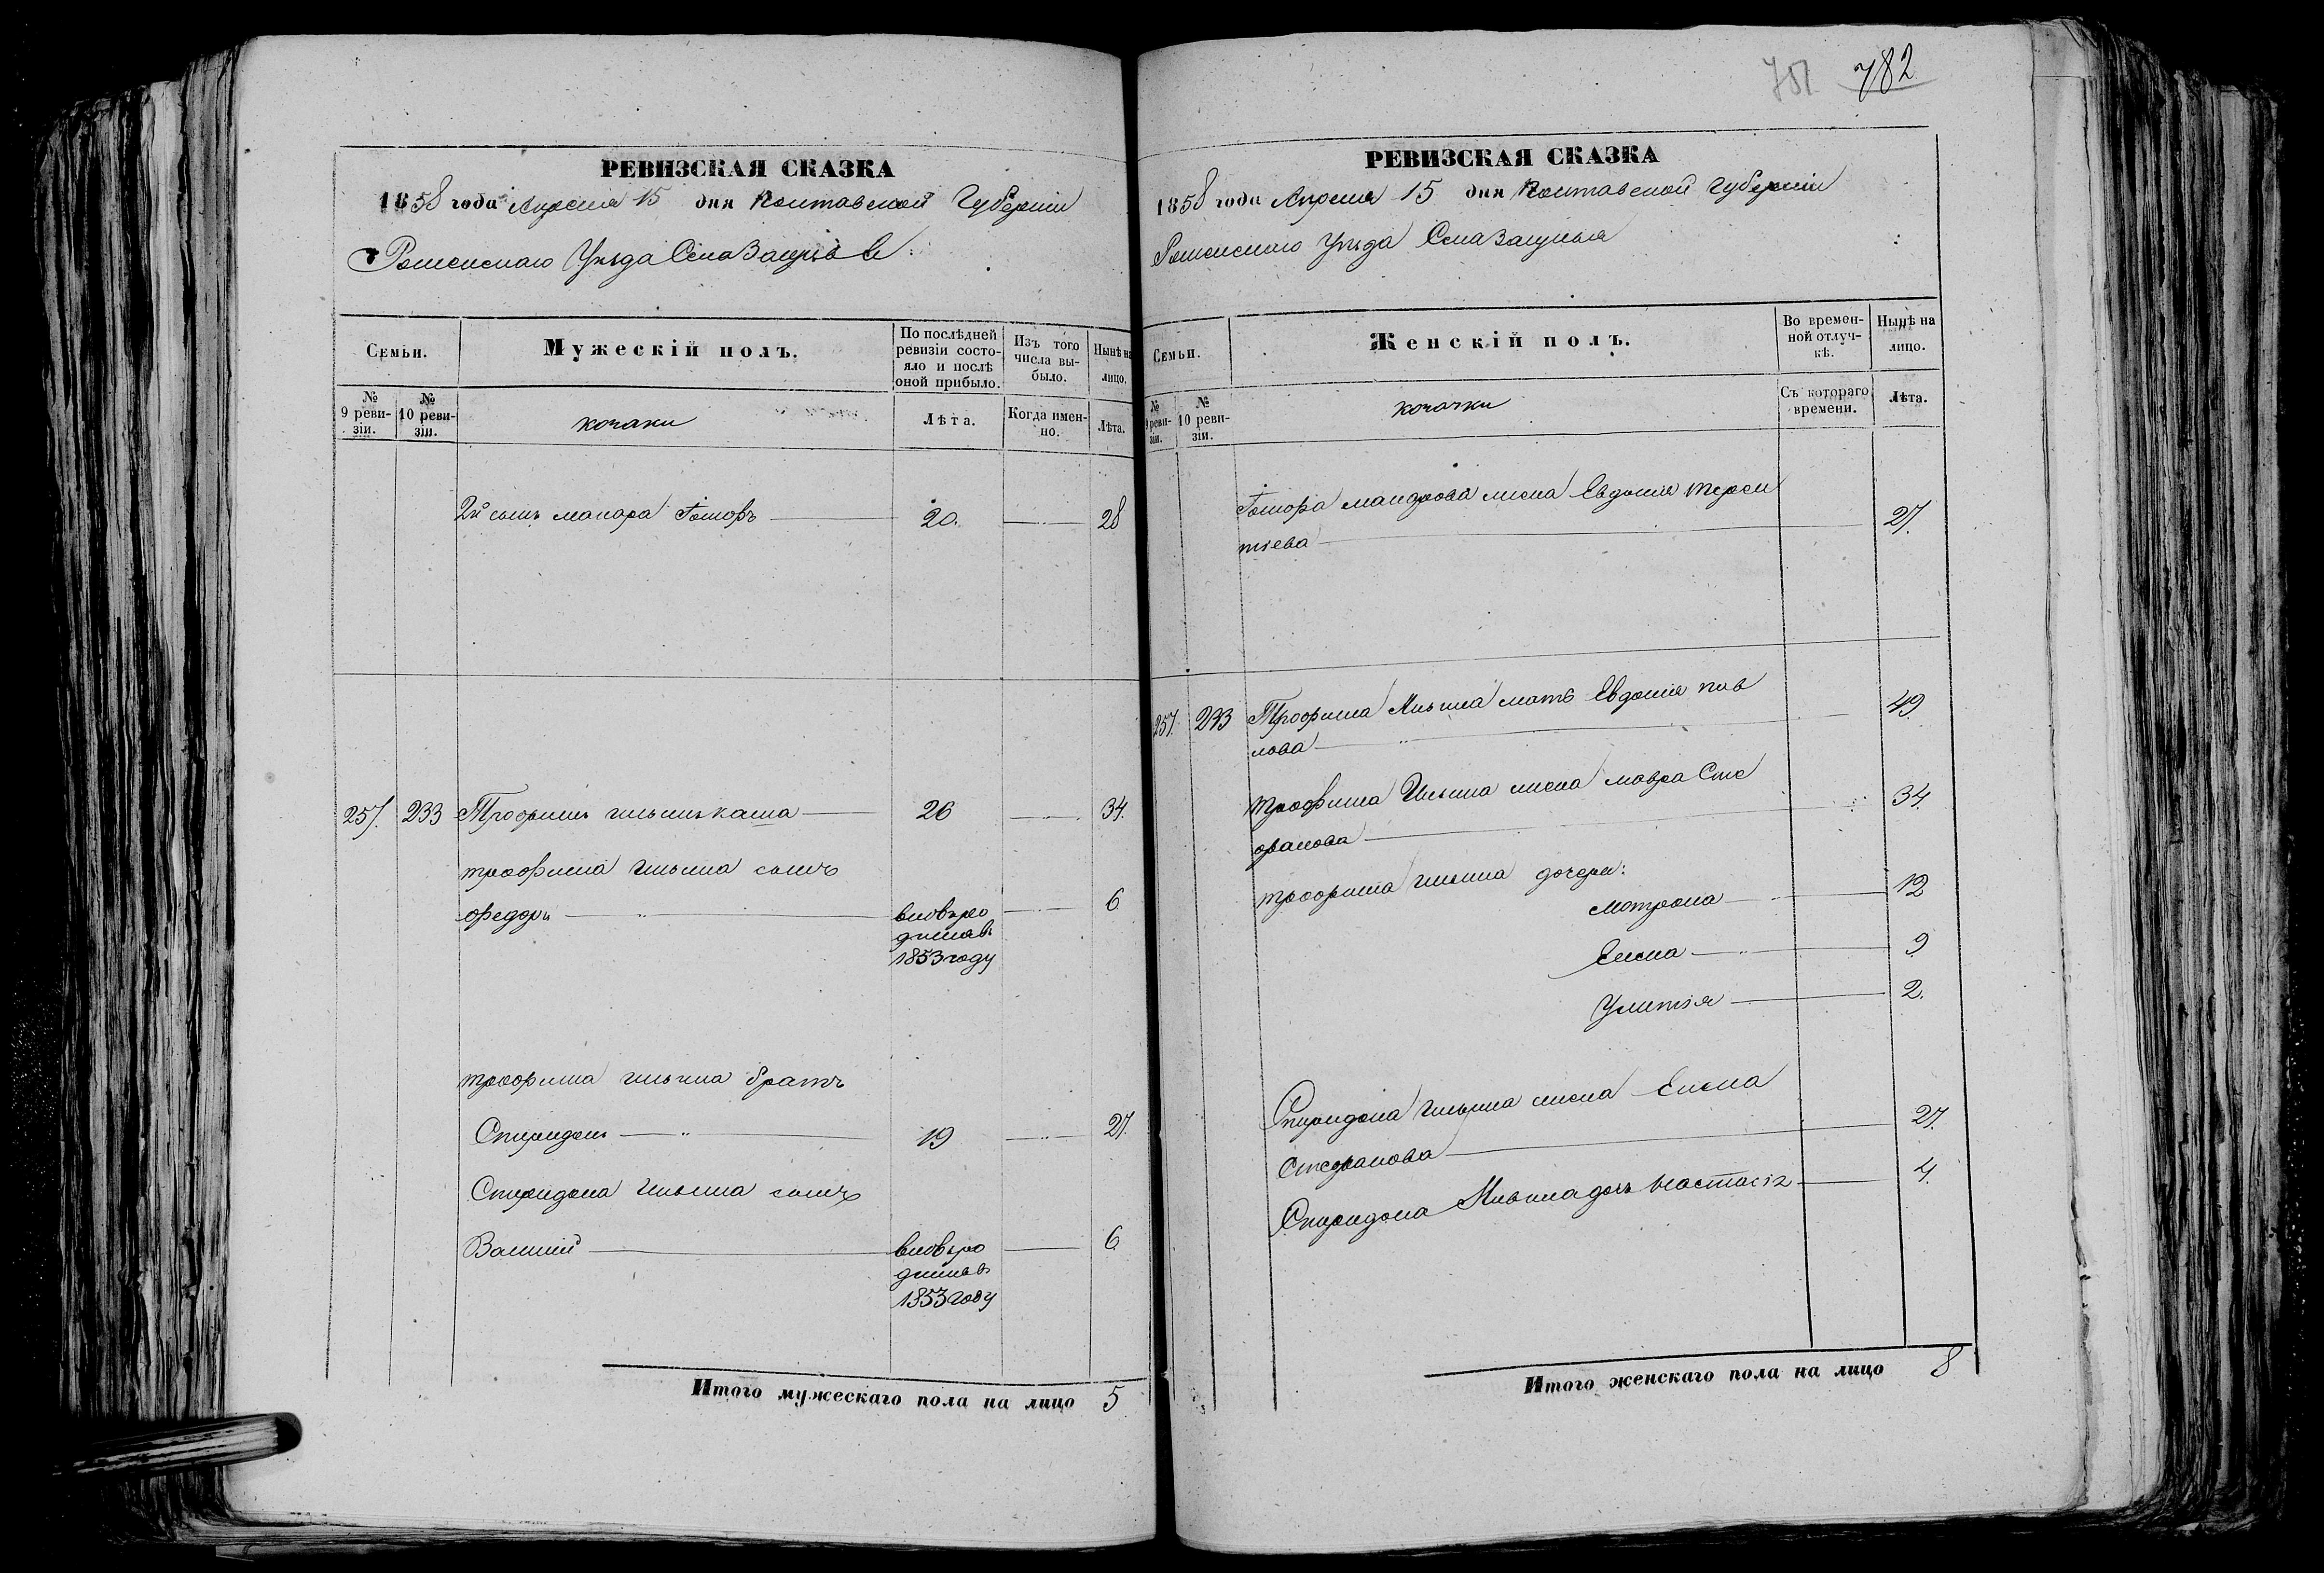 РЕВИЗСКАЯ СКАЗКА
1858 года Апреля 15 дня Полтавской Губерніи
Роменскаго Уезда Села Зацеп
Семьи. Мужескій полъ. По послѣдней ревизіи состояло и послѣ оной прибыло. Изъ того числа выбыло. Нынѣ на лицо.
№ 9 ревизіи. № 10 ревизіи. козаки Лѣта. Когда именно. Лѣта.
2й сынъ макара 20. 28
257. 233 Трофимъ ильинъ каша 26 34.
трофима ильина сынъ
федоръ вновь ро 6
дился в
1853 году
трофима ильина братъ
Спиридонъ 19 27.
Спиридона ильина сынъ
Василий вновь ро 6
дился в
1853 году
Итого мужескаго пола на лицо 5
751 782
РЕВИЗСКАЯ СКАЗКА
1858 года Апреля 15 дня Полтавской Губерніи
Роменскаго Уезда Села
Семьи. Женскій полъ. Во временной отлучкѣ. Нынѣ на лицо.
№ 9 ревизіи. № 10 ревизіи. козачки Съ котораго времени. Лѣта.
жена Евдокия терен
тіева 27.
257. 233 Трофима Ильина мать Евдокия пав 49.
лова
трофима Ильина жена мавра Сте 34.
фанова
трофима ильина дочери:
мотрона 12
Елена 9
Улитія 2.
Спиридона ильина жена Елена
Стефанова 27.
Спиридона Ильина дочь настасія 4.
Итого женскаго пола на лицо 8